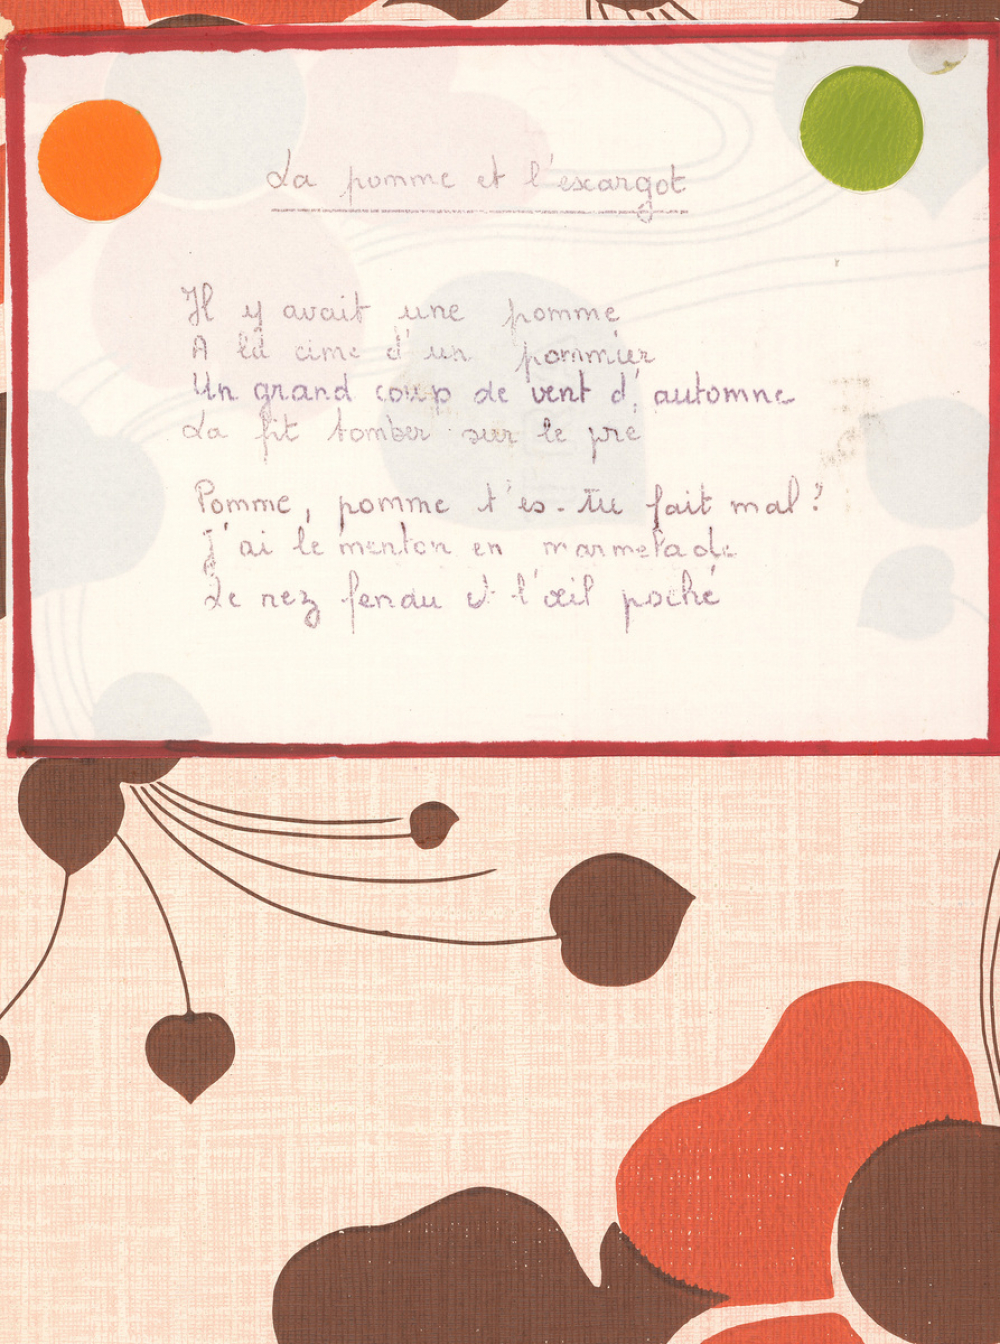 La pomme et l'escargot
Il y avait une pomme
A la cime d'un pommier
Un grand coup de vent d'automne
La fit tomber sur le pré
Pomme, pomme t'es-tu fait mal ?
J'ai le menton en marmelade
Le nez fendu et l'œil poché